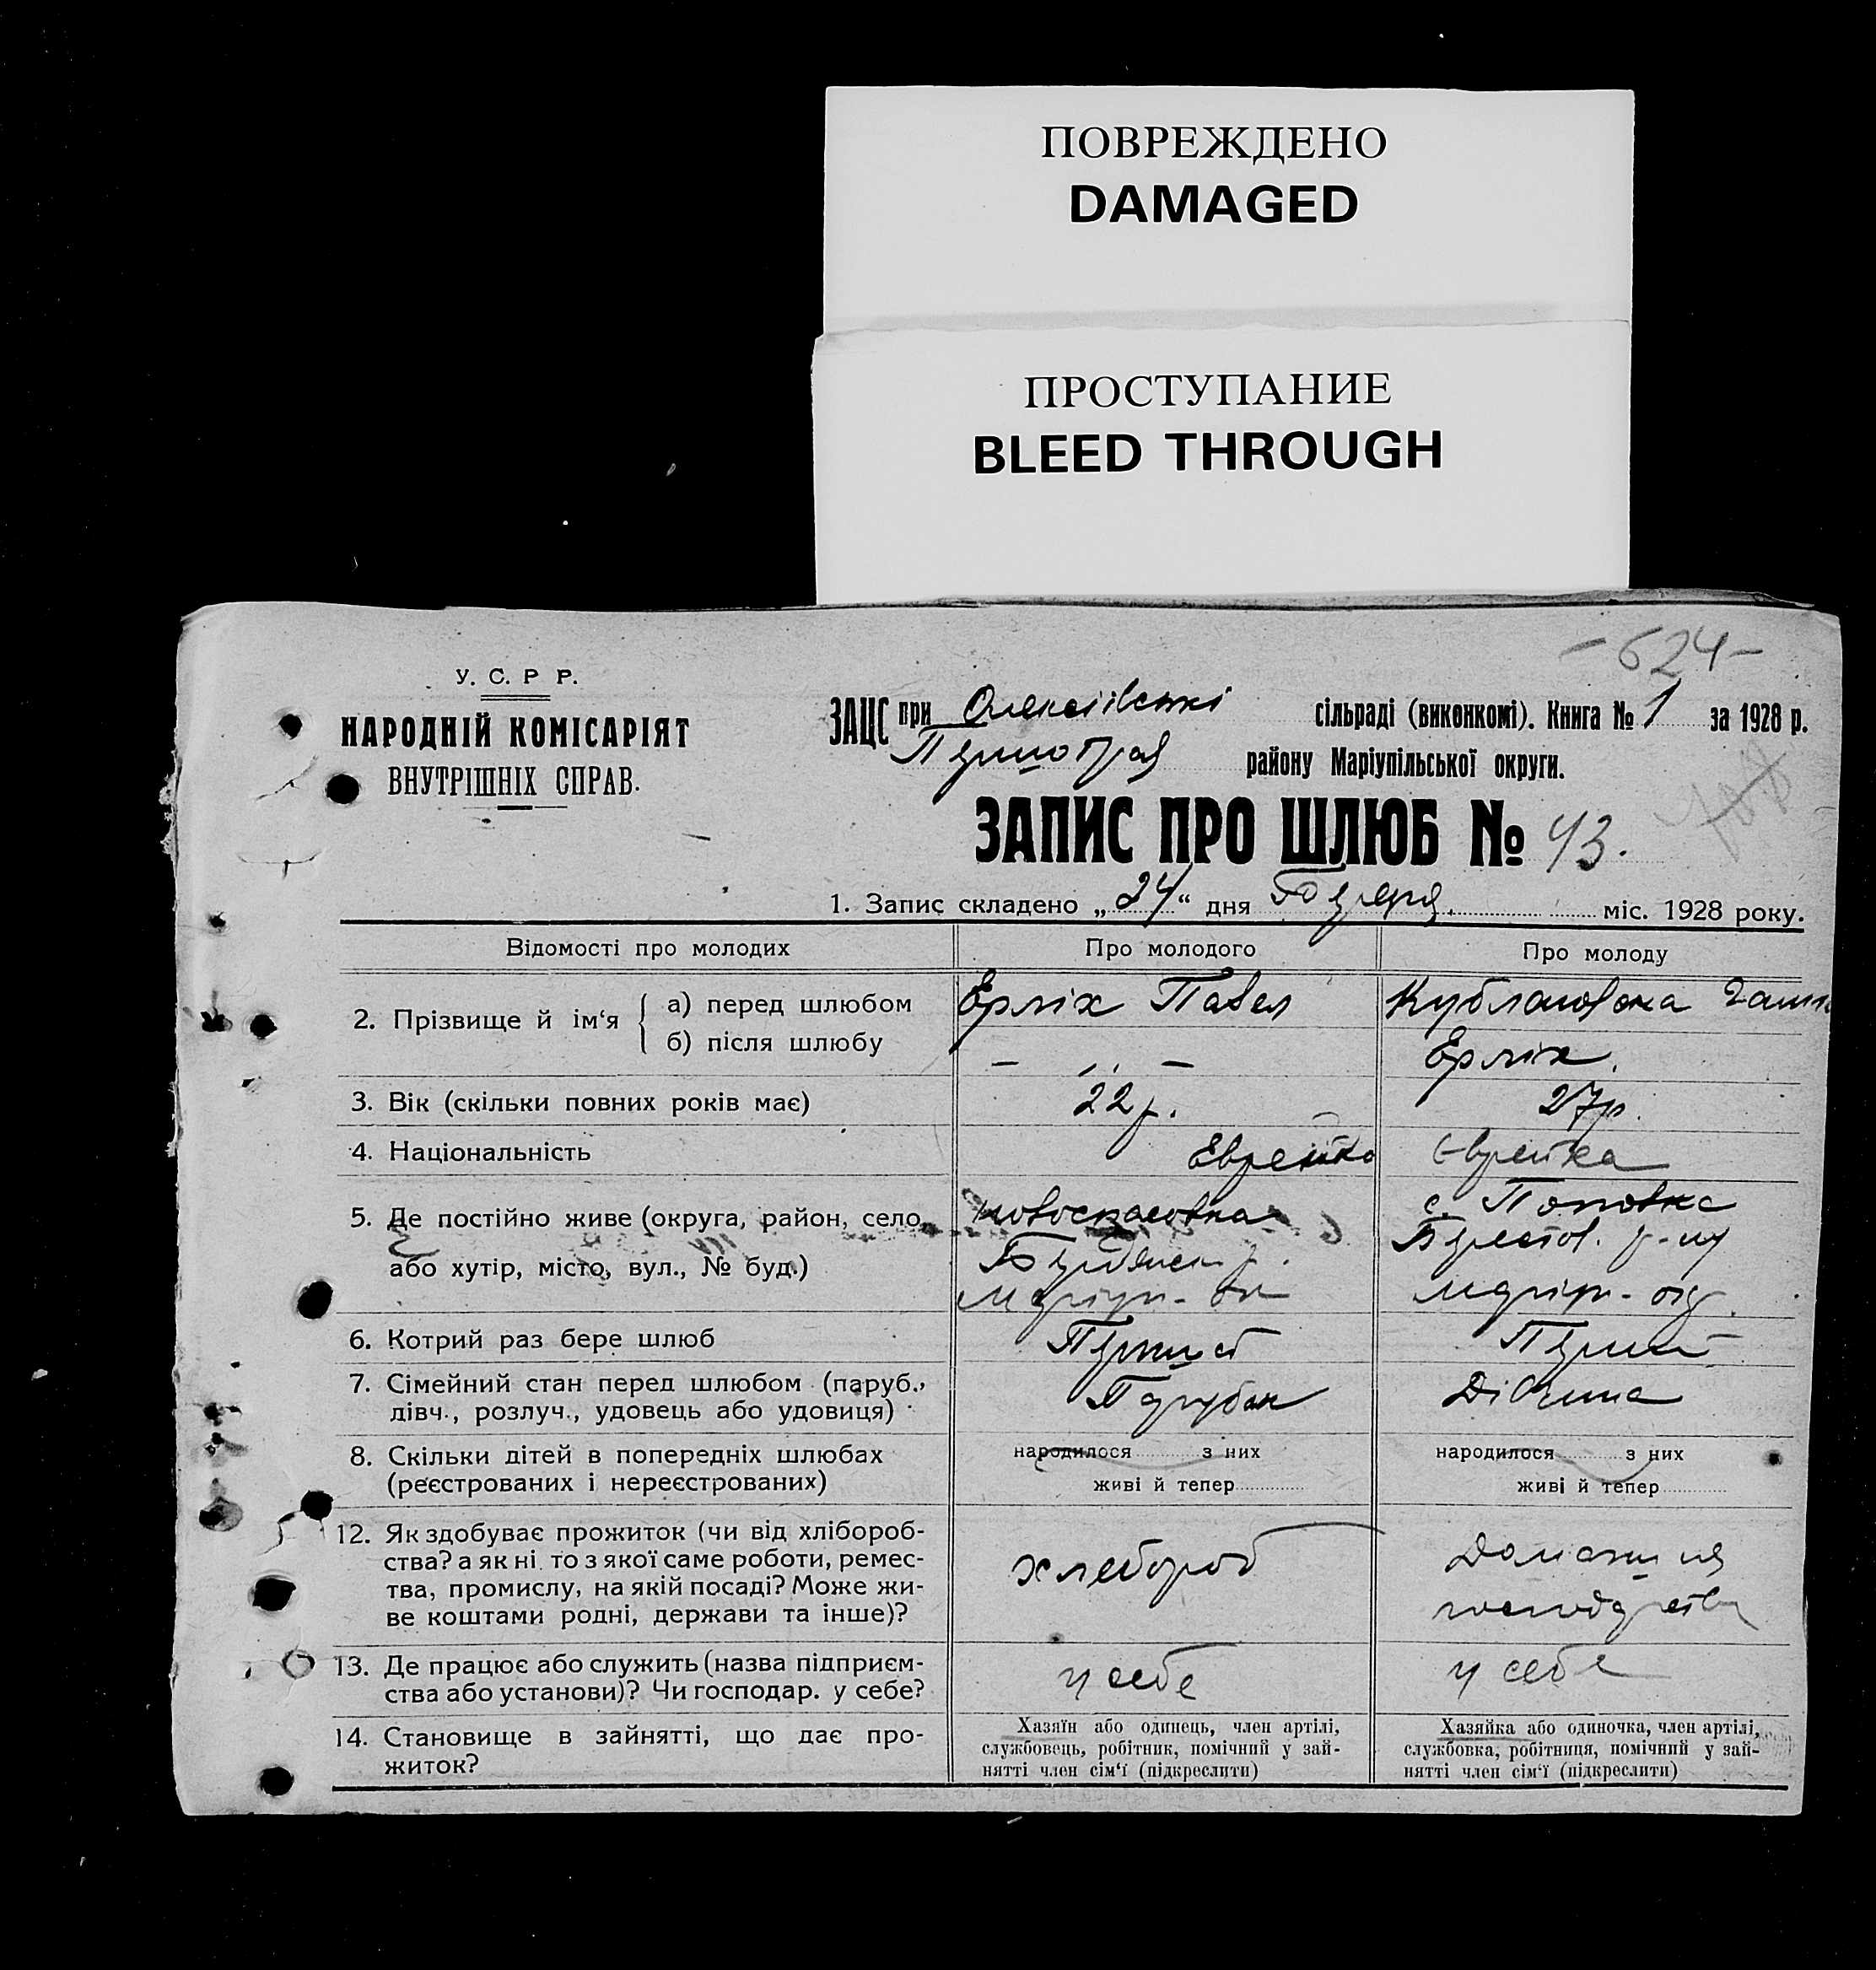 ПОВРЕЖДЕНО
DAMAGED
ПРОСТУПАНИЕ
BLEED THROUGH
- 624 -
У. С. Р Р.
НАРОДНІЙ КОМІСАРІЯТ
ВНУТРІШНІХ СПРАВ.
ЗАЦС при Олексіївські сільраді (виконкомі). Книга № 1 за 1928 р.
району Маріупільської округи.
ЗАПИС ПРО ШЛЮБ № 43.
1. Запис складено „24“ дня міс. 1928 року.
Відомості про молодих Про молодого Про молоду
2. Прізвище й ім'я { а) перед шлюбом Ерліх Павел Кублановска
б) після шлюбу — ,, — Ерліх.
3. Вік (скільки повних років має) 22 р. 27 р.
4. Національність Еврейка Єврейка
5. Де постійно живе (округа, район, село, Новоспасовка с. Поповка
або хутір, місто, вул., № буд.) Бердянськ р.
6. Котрий раз бере шлюб Перший Перший
7. Сімейний стан перед шлюбом (паруб., Парубок Дівчина
дівч., розлуч., удовець або удовиця)
8. Скільки дітей в попередніх шлюбах народилося з них народилося з них
(реєстрованих і нереєстрованих) живі й тепер живі й тепер
12. Як здобуває прожиток (чи від хлібороб-
ства? а як ні, то з якої саме роботи, ремес- хлебороб Домашня
тва, промислу, на якій посаді? Може жи- господарства
ве коштами родні, держави та інше)?
13. Де працює або служить (назва підприєм- у себе у себе
ства або установи)? Чи господар. у себе?
14. Становище в зайнятті, що дає про- Хазяїн або одинець, член артілі, Хазяйка або одиночка, член артілі,
житок? службовець, робітник, помічний у зай- службовка, робітниця, помічний у зай-
нятті член сім'ї (підкреслити) нятті член сім'ї (підкреслити)